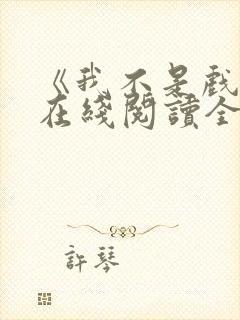 《我不是戲
在綫閱讀全
許琴